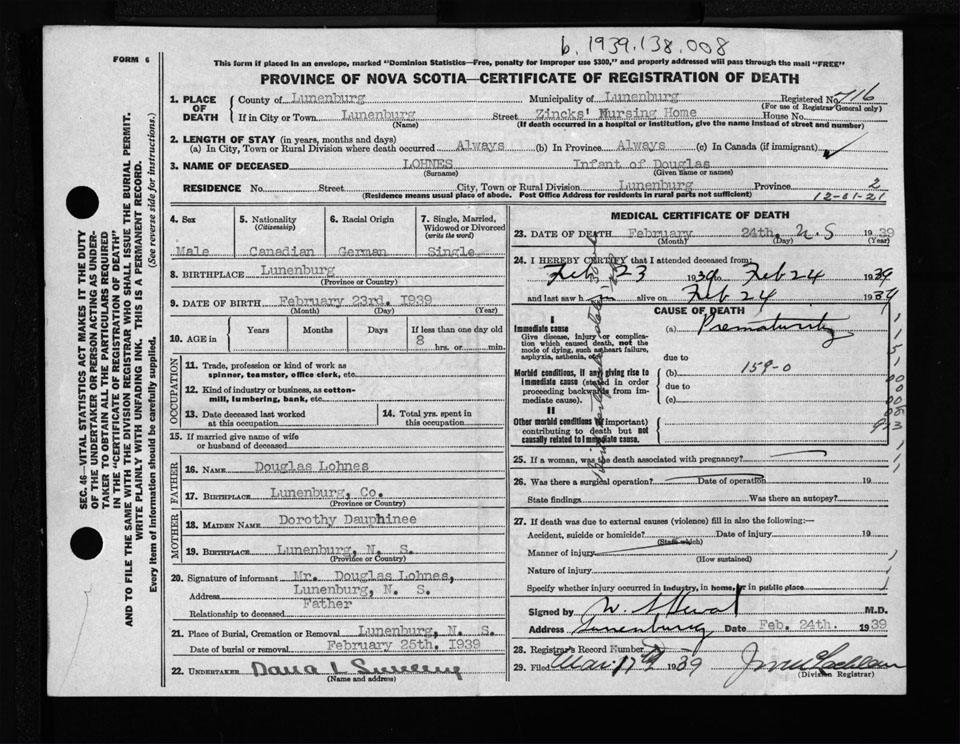 b. 1939.138.008
FORM 6
This form if placed in an envelope, marked "Dominion Statistics—Free, penalty for improper use $300," and properly addressed will pass through the mail "FREE"
PROVINCE OF NOVA SCOTIA—CERTIFICATE OF REGISTRATION OF DEATH
SEC. 46—VITAL STATISTICS ACT MAKES IT THE DUTY
OF THE UNDERTAKER OR PERSON ACTING AS UNDER-
TAKER TO OBTAIN ALL THE PARTICULARS REQUIRED
IN THE "CERTIFICATE OF REGISTRATION OF DEATH"
AND TO FILE THE SAME WITH THE DIVISION REGISTRAR WHO SHALL ISSUE THE BURIAL PERMIT.
WRITE PLAINLY WITH UNFADING INK. THIS IS A PERMANENT RECORD.
Every item of Information should be carefully supplied. (See reverse side for instructions.)
1. PLACE OF DEATH
County of Lunenburg Municipality of Lunenburg Registered No. 716
(For use of Registrar General only)
If in City or Town Lunenburg Street Zincks' Nursing Home House No.
(Name) (If death occurred in a hospital or institution, give the name instead of street and number)
2. LENGTH OF STAY (in years, months and days)
(a) In City, Town or Rural Division where death occurred Always (b) In Province Always (c) In Canada (if immigrant)
3. NAME OF DECEASED LOHNES Infant of Douglas
(Surname) (Given name or names)
RESIDENCE No. Street City, Town or Rural Division Lunenburg Province 2
(Residence means usual place of abode. Post Office Address for residents in rural parts not sufficient) 12-01-21
4. Sex 5. Nationality (Citizenship) 6. Racial Origin 7. Single, Married, Widowed or Divorced (write the word)
Male Canadian German Single
8. BIRTHPLACE Lunenburg
(Province or Country)
9. DATE OF BIRTH February 23rd. 1939
(Month) (Day) (Year)
10. AGE in Years Months Days If less than one day old
8 hrs. or min.
OCCUPATION
11. Trade, profession or kind of work as
spinner, teamster, office clerk, etc.
12. Kind of industry or business, as cotton-
mill, lumbering, bank, etc.
13. Date deceased last worked
at this occupation
14. Total yrs. spent in
this occupation
15. If married give name of wife
or husband of deceased
FATHER
16. NAME Douglas Lohnes
17. BIRTHPLACE Lunenburg, Co.
(Province or Country)
MOTHER
18. MAIDEN NAME Dorothy Dauphinee
19. BIRTHPLACE Lunenburg, N. S.
(Province or Country)
20. Signature of informant Mr. Douglas Lohnes,
Address Lunenburg, N. S.
Relationship to deceased Father
21. Place of Burial, Cremation or Removal Lunenburg, N. S.
Date of burial or removal February 25th. 1939
22. UNDERTAKER
(Name and address)
MEDICAL CERTIFICATE OF DEATH
23. DATE OF DEATH February 24th. N.S 1939
(Month) (Day) (Year)
24. I HEREBY CERTIFY that I attended deceased from:
Feb 23 1939 to Feb 24 1939
and last saw h alive on Feb 24 1939
CAUSE OF DEATH
I
Immediate cause (a) Prematurity
Give disease, injury or complica-
tion which caused death, not the
mode of dying, such as heart failure,
asphyxia, asthenia, etc.
due to
Morbid conditions, if any giving rise to
immediate cause (stated in order
proceeding backwards from im-
mediate cause).
(b) 159-0
due to
(c)
II
Other morbid conditions (if important)
contributing to death but not
causally related to immediate cause.
25. If a woman, was the death associated with pregnancy?
26. Was there a surgical operation? Date of operation 19
State findings Was there an autopsy?
27. If death was due to external causes (violence) fill in also the following:—
Accident, suicide or homicide? Date of injury 19
(State which)
Manner of injury
(How sustained)
Nature of injury
Specify whether injury occurred in industry, in home, or in public place
Signed by M.D.
Address Lunenburg Date Feb. 24th. 1939
28. Registrar's Record Number
29. Filed Mar. 17 1939
(Division Registrar)